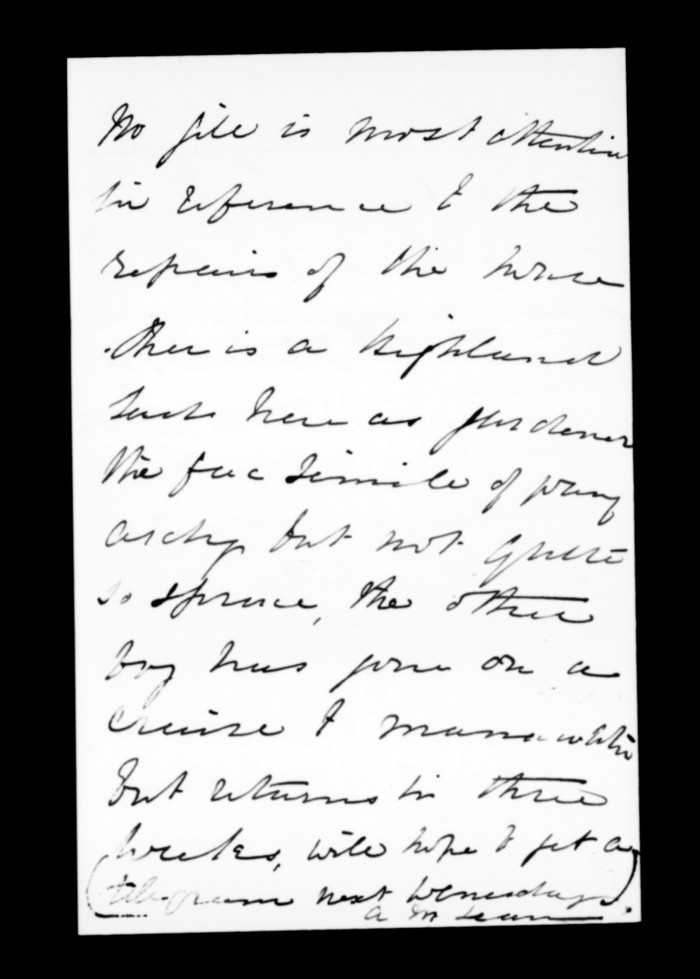 Mr Gill is most attentive
in reference to the
repairs of the house
.ther is a Highland
lad here as gardener
the fac simile of young
archy but not quite
so spruce, the other
boy has gone on a
cruise to manawatu
but returns in three
weeks, will hope to get a
(telegram next Wensday).
a m Lean